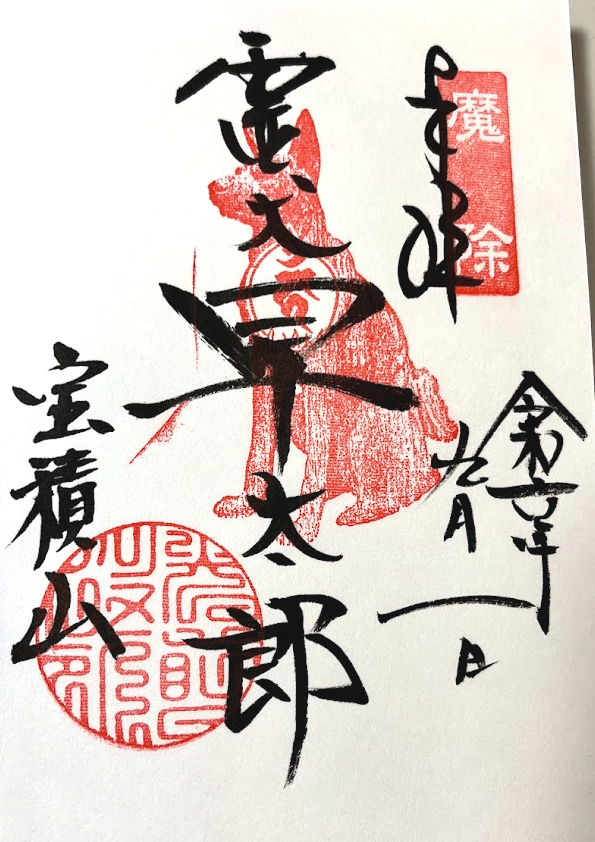 魔除
奉拝
令和六年
九月一日
霊犬早太郎
宝積山